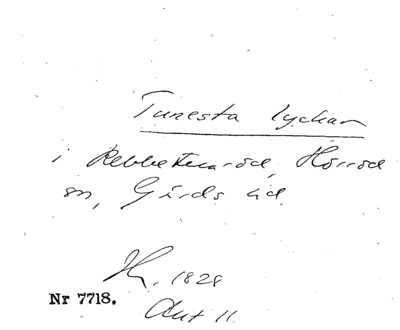 Tunesta lyckan
i Rebbetuaröd, Hörröd
sn, Gärds hd.
Hr. 1828
Nr 7718.
Akt 11.